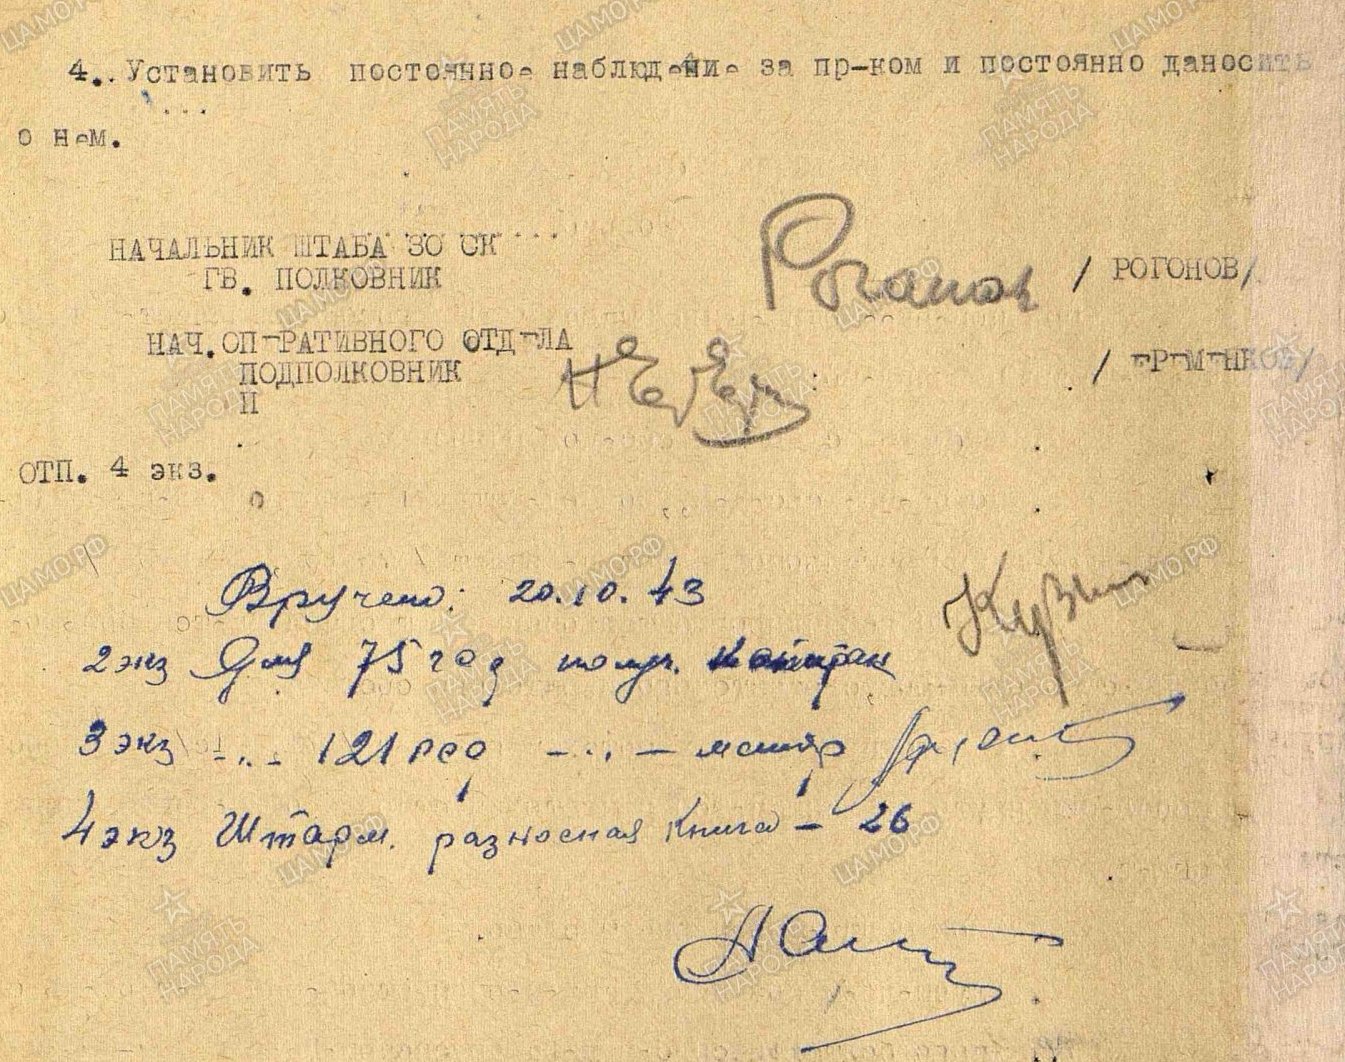 4. Установить постоянное наблюдение за пр-ком и постоянно даносить
о нем.
НАЧАЛЬНИК ШТАБА 30 СК
ГВ. ПОЛКОВНИК
/ РОГОНОВ/
НАЧ. ОПЕРАТИВНОГО ОТДЕЛА
ПОДПОЛКОВНИК
/ ЕРЕМЕНКОВ/
П
ОТП. 4 экз.
Вручено: 20.10.43
2 экз Для 75 год получ. капитан
3 экз -..- 121 рсд -..- майор
4 экз Штарм. разносная книга - 26
ПАМЯТЬ НАРОДА
ЦАМО.РФ